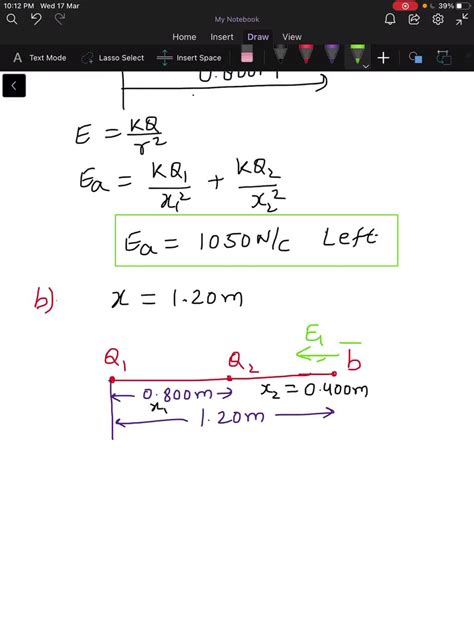 10:12 PM Wed 17 Mar 39%
My Notebook
Home Insert Draw View
Text Mode Lasso Select Insert Space
0.800m
E = KQ/r²
Ea = KQ₁/x₁² + KQ₂/x₂²
Ea = 1050N/C Left
b). x = 1.20m
E₁
Q₁ Q₂ b
0.800m x₂ = 0.400m
x₁
1.20m